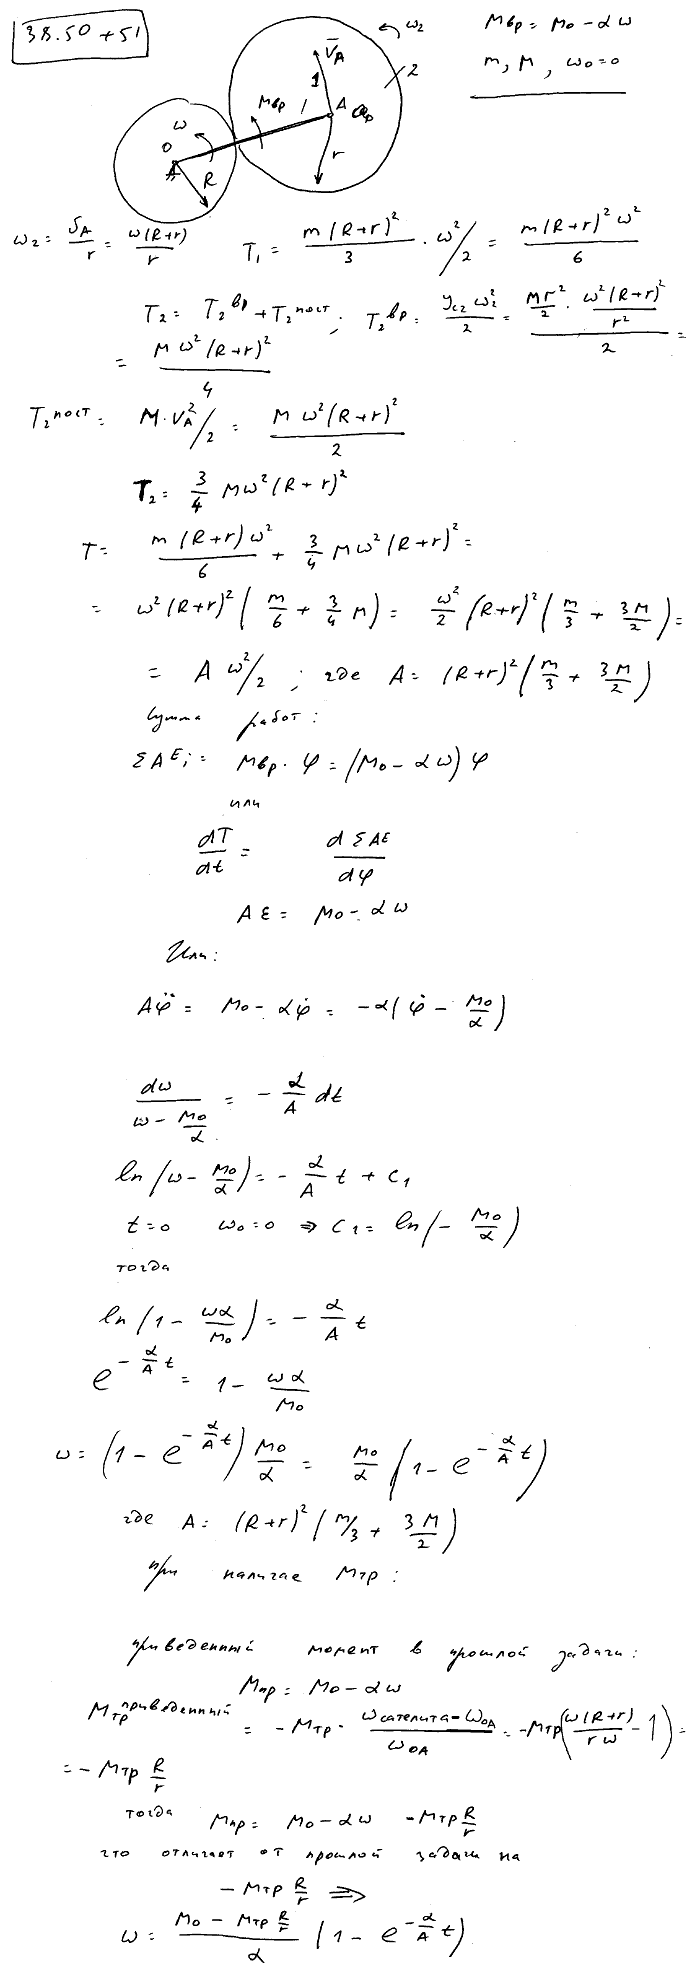 38.50 + 51
Mвр = M₀ - αω
m, M, ω₀ = 0
ω₂
V̄_A
2
1
A
Mвр
ω
O
R
r
ω₂ = V_A/r = ω(R+r)/r    T₁ = m(R+r)²/3 · ω²/2 = m(R+r)²ω²/6
T₂ = T₂ᵇᵖ + T₂ᵖᵒᶜᵗ; T₂ᵇᵖ = J_c₂ω₂²/2 = (Mr²/2 · ω²(R+r)²/r²)/2 =
= Mω²(R+r)²/4
T₂ᵖᵒᶜᵗ = M·V_A²/2 = Mω²(R+r)²/2
T₂ = 3/4 Mω²(R+r)²
T = m(R+r)ω²/6 + 3/4 Mω²(R+r)² =
= ω²(R+r)²(m/6 + 3/4 M) = ω²/2 (R+r)²(m/3 + 3M/2) =
= A ω²/2 ; где A = (R+r)²(m/3 + 3M/2)
Сумма работ:
ΣAᴱᵢ = Mвр · φ = (M₀ - αω)φ
или
dT/dt = dΣAᴱ/dφ
Aε = M₀ - αω
Или:
Aφ̈ = M₀ - αφ̇ = -α(φ̇ - M₀/α)
dω/(ω - M₀/α) = - α/A dt
ln(ω - M₀/α) = - α/A t + C₁
t = 0 ω₀ = 0 ⇒ C₁ = ln(- M₀/α)
тогда
ln(1 - ωα/M₀) = - α/A t
e^(- α/A t) = 1 - ωα/M₀
ω = (1 - e^(- α/A t)) M₀/α = M₀/α (1 - e^(- α/A t))
где A = (R+r)²(m/3 + 3M/2)
при наличае Mтр:
приведенный момент в прошлой задачи:
Mпр = M₀ - αω
Mтр приведенный = - Mтр · (ωсателита - ω_OA)/ω_OA = - Mтр(ω(R+r)/rω - 1) =
= - Mтр R/r
тогда Mпр = M₀ - αω - Mтр R/r
что отличает от прошлой задачи на
- Mтр R/r ⇒
ω = (M₀ - Mтр R/r)/α (1 - e^(- α/A t))